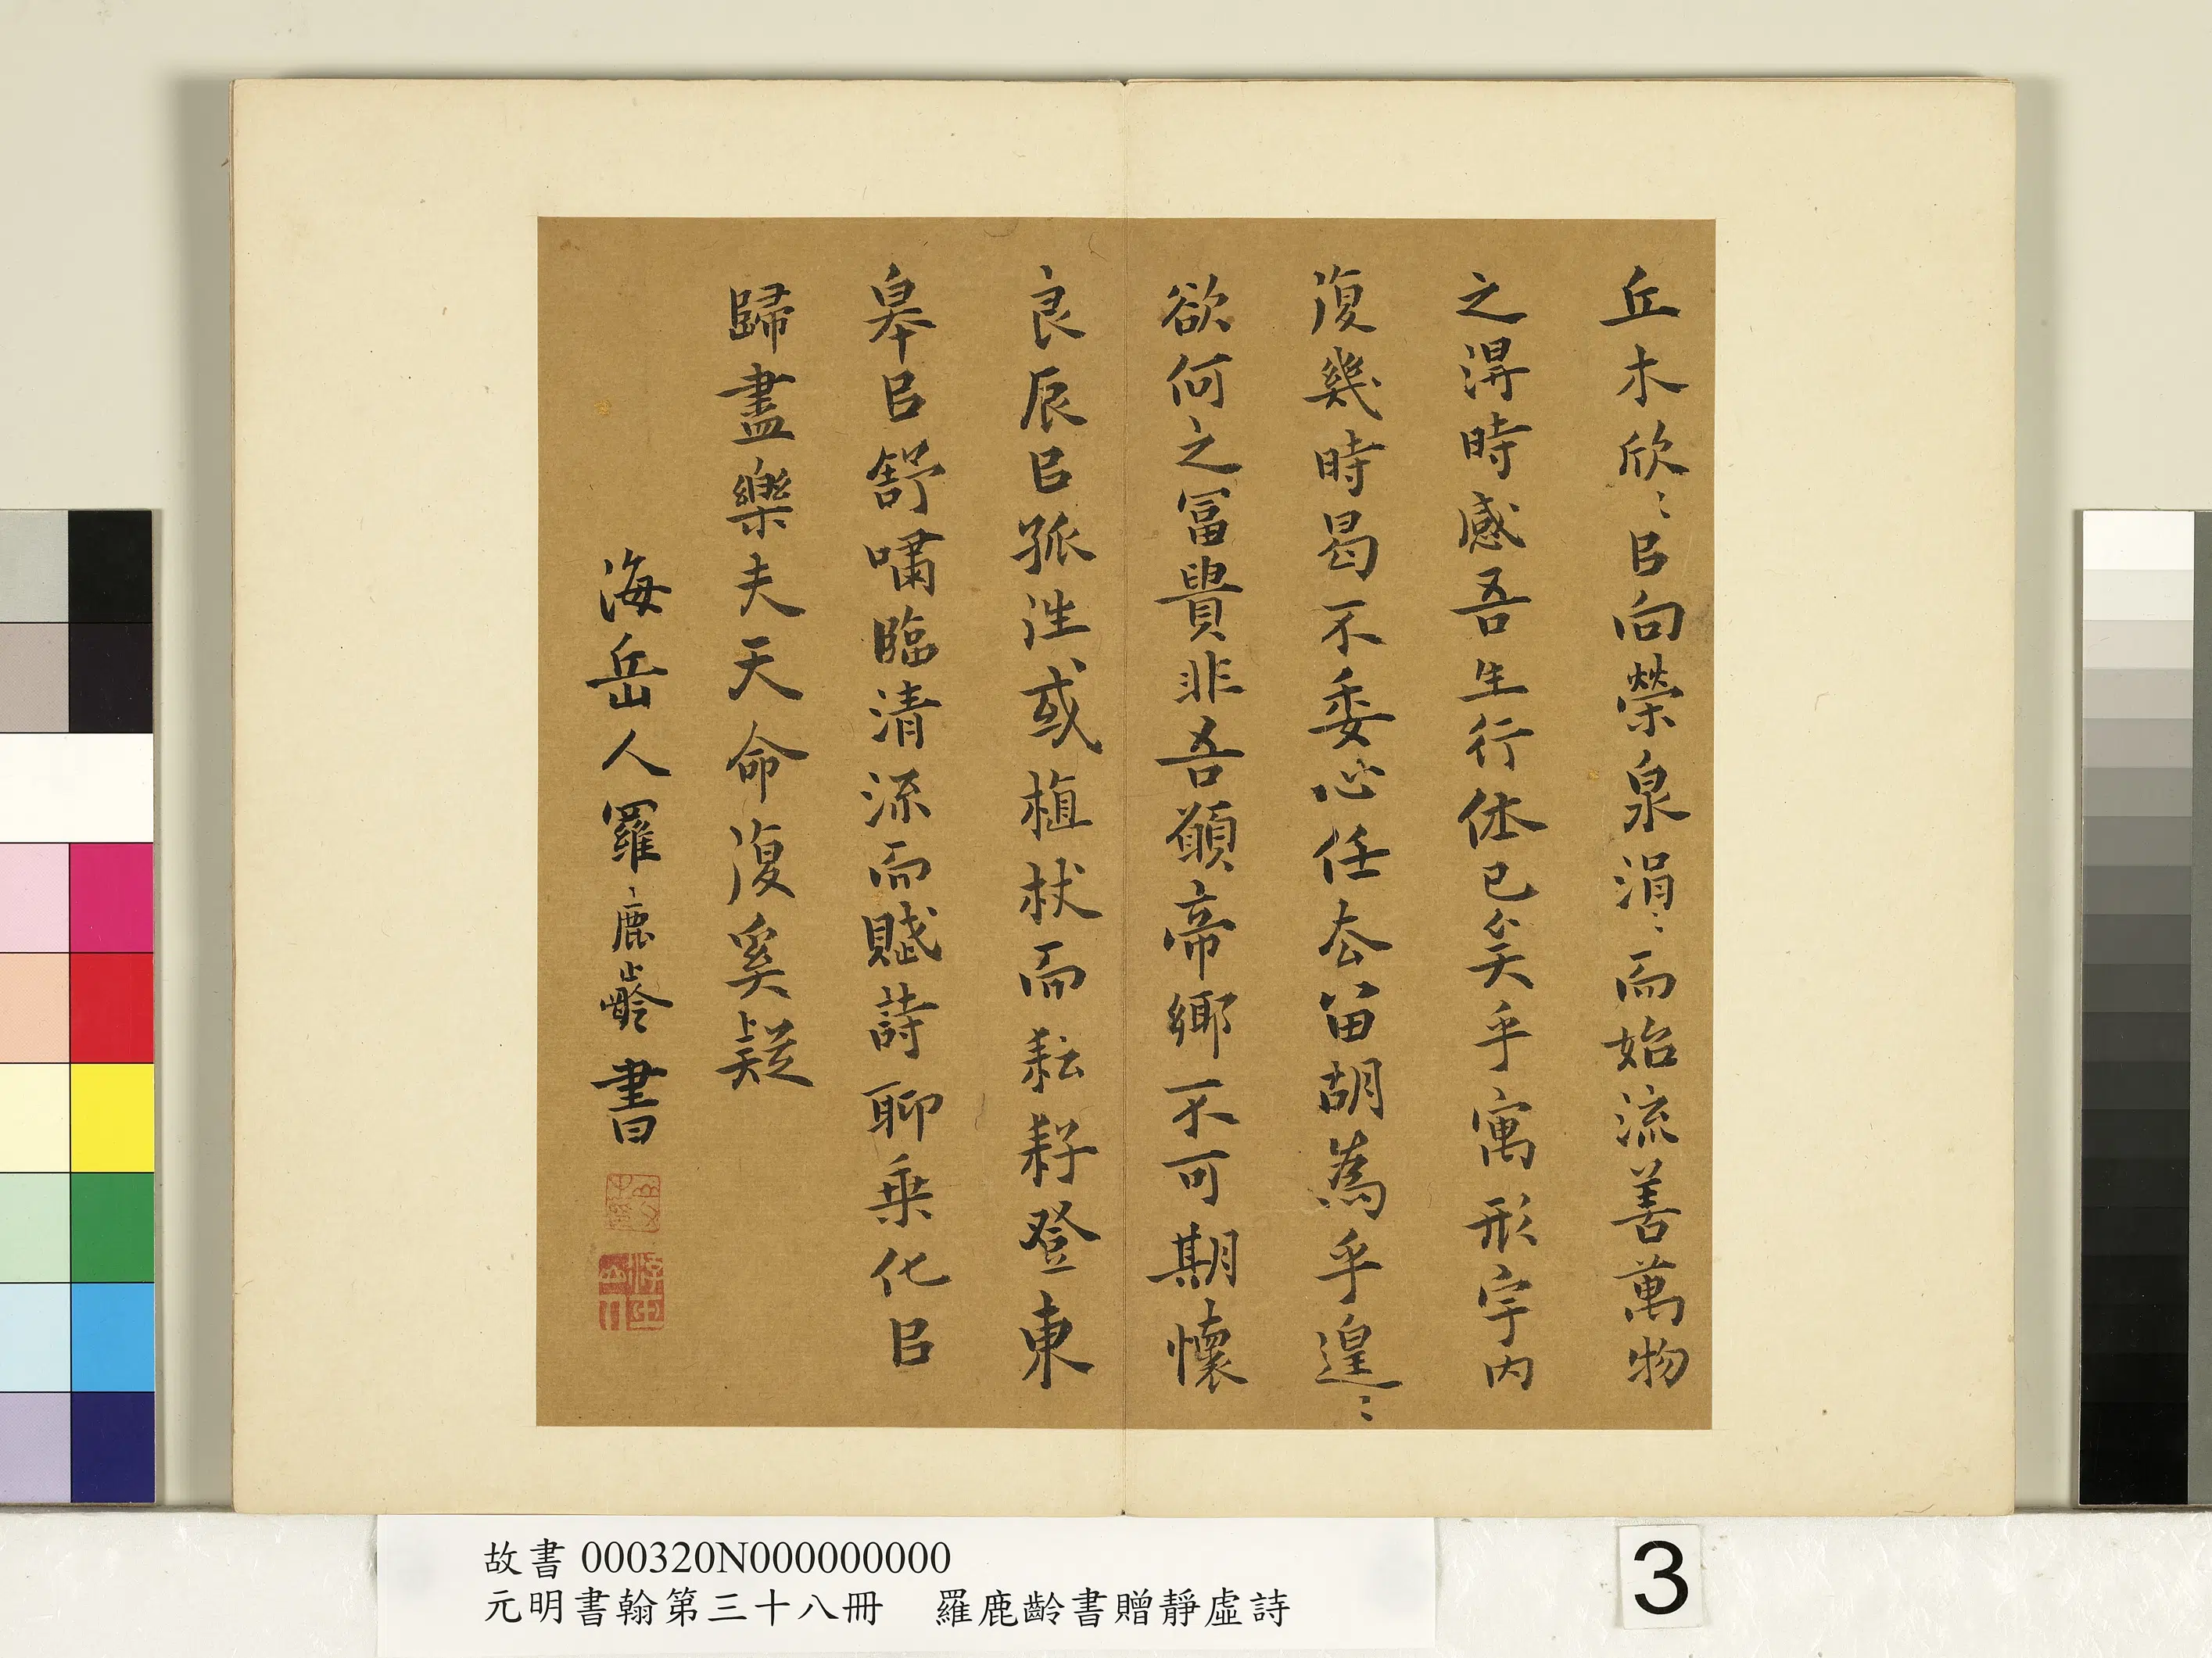 丘木欣〻㠯向榮泉涓〻而始流善萬物
之淂時感吾生行休已矣乎寓形宇内
復幾時曷不委心任去留胡為乎遑〻
欲何之冨貴非吾願帝鄉不可期懷
良辰㠯孤往或植杖而耘耔登東
皋㠯舒嘯臨清流而賦詩聊乗化㠯
歸盡樂夫天命復奚疑
海岳人羅鹿齡書
故書 000320N000000000
元明書翰第三十八冊 羅鹿齡書贈靜虛詩
3